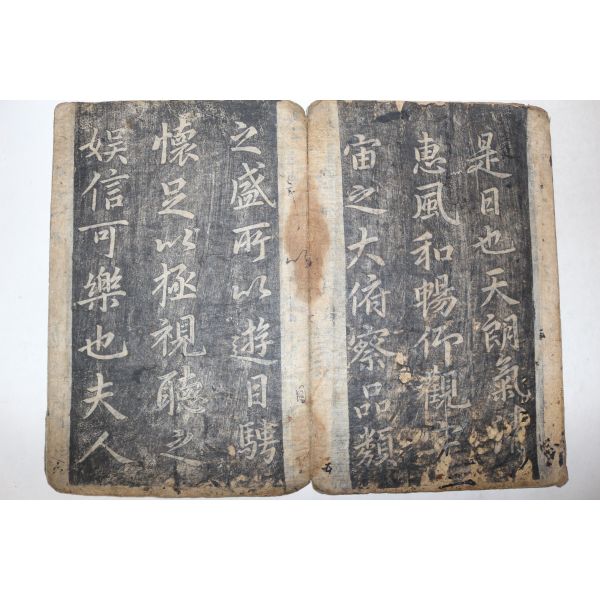 是日也天朗氣清
惠風和暢仰觀宇
宙之大俯察品類
之盛所以遊目騁
懷足以極視聽之
娛信可樂也夫人